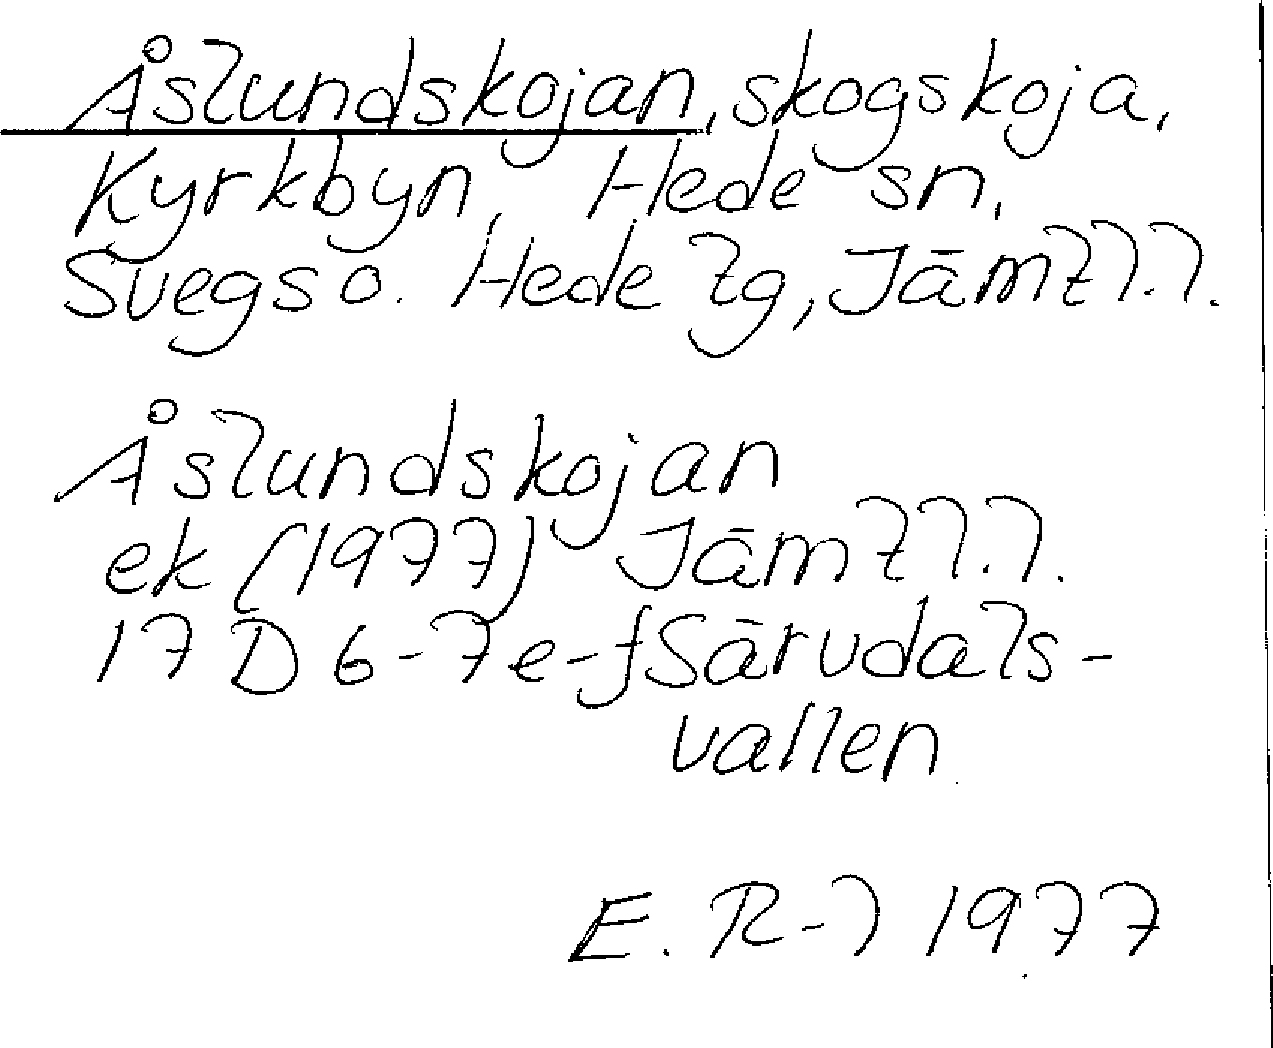 Åslundskojan, skogskoja,
Kyrkbyn, Hede sn,
Svegs o. Hede tg, Jämtl.l.
Åslundskojan
ek (1977) Jämtl.l.
17 D 6-7e-f Särvdals-
vallen
E. R-l 1977